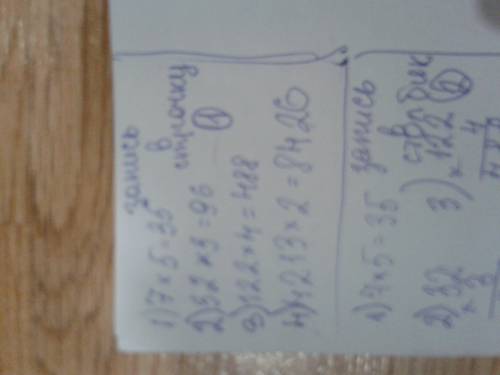 запись
в
строчку
1
1) 7 × 5 = 35
2) 32 × 3 = 96
3) 122 × 4 = 488
4) 4213 × 2 = 8426
запись
в
столбик
2
1) 7 × 5 = 35
2) 32
× 3
3) 122
× 4